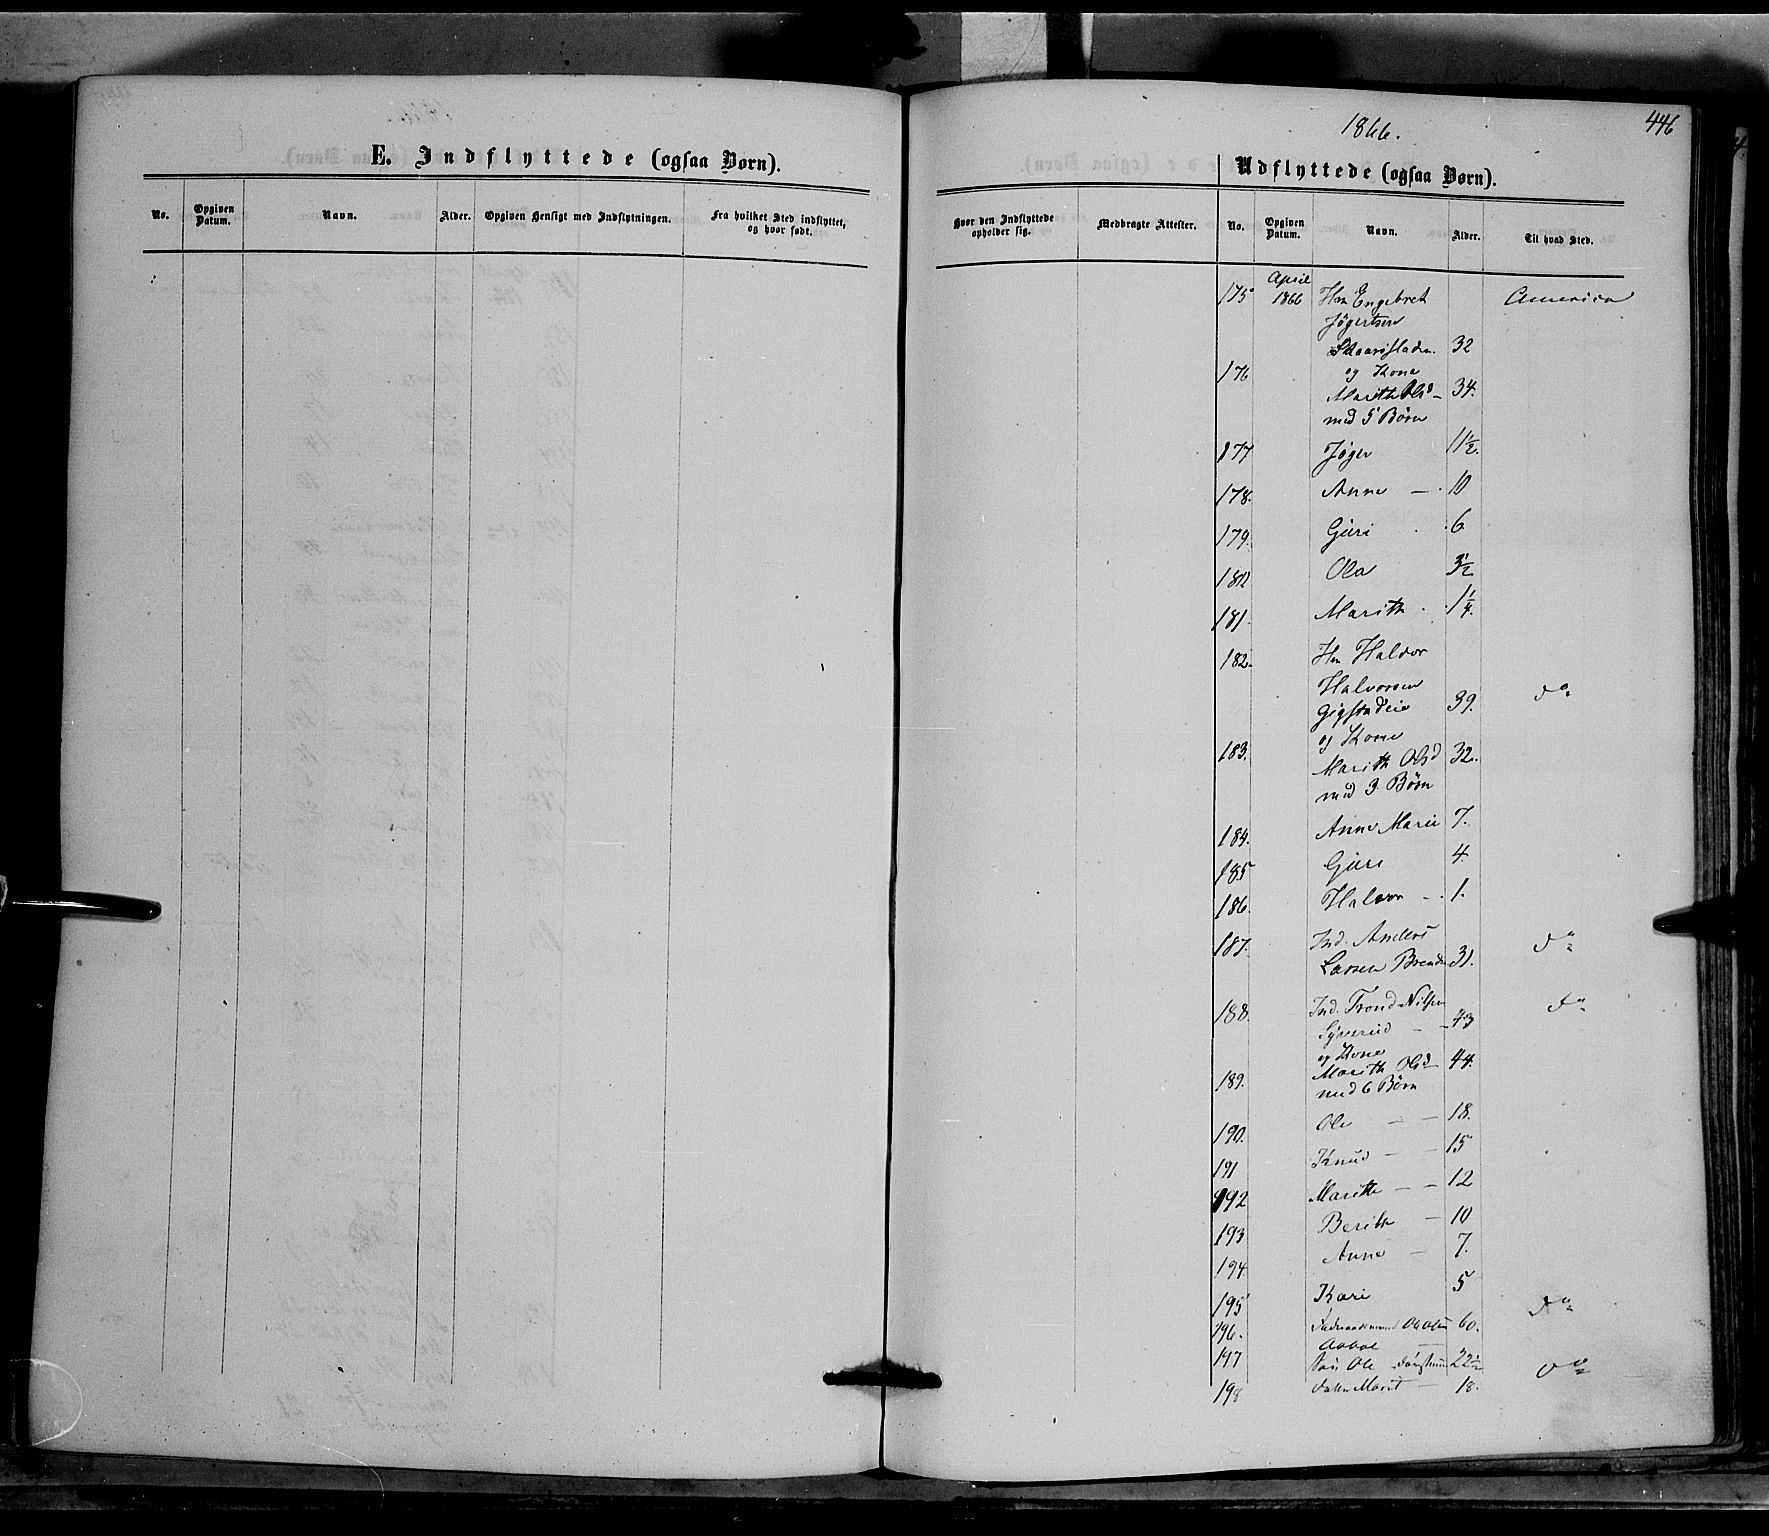 446
1866.
E. Indflyttede (ogsaa Børn).
Udflyttede (ogsaa Børn).
No. Opgiven Datum. Navn. Alder. Opgiven Hensigt med Indflytningen. Fra hvilket Sted indflyttet, og hvor født.
Hvor den Indflyttede opholder sig. Medbragte Attester. No. Opgiven Datum. Navn. Alder. Til hvad Sted.
175 April 1866 Hm Engebret America
Jøgertsen
32
176 og Kone
Marith Olsd – 34.
med 5 Børn
177 Jøger 11½.
178. Anne – 10
179. Guri 6.
180 Ola 3½
181. Marith 1¼.
182. Hm Haldor
Halvorsen
Gigstadeie 39. do
og Kone
183. Marith Olsd 32.
med 3 Børn
184. Anne Marie 7.
185 Guri 4.
186. Halvor – 1.
187. Ind. Anders do
Larsen 31.
188. Ind. Trond Nilsen do
Syverud – 43
og Kone
189. Marith Olsd 44.
med 6 Børn
190. Ole – – 18.
191 Knud – – 15
192 Marith – – 12
193 Berith – 10
194. Anne – 7.
195 Kari 5
do
196. Ole Olsen 60.
197 Ole 22½
do
198 Marit – 18.